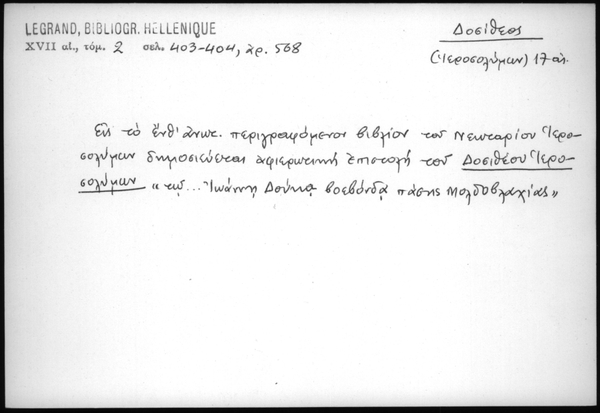 LEGRAND, BIBLIOGR. HELLENIQUE
XVII αἰ., τόμ. 2 σελ. 403-404, ἀρ. 568
Δοσίθεος
(Ἱεροσολύμων) 17 αἰ.
Εἰς τὸ ἔνθ' ἀνωτ. περιγραφόμενον βιβλίον τοῦ Νεκταρίου Ἱερο-
σολύμων δημοσιεύεται ἀφιερωτικὴ ἐπιστολὴ τοῦ Δοσιθέου Ἱερο-
σολύμων « τῷ ... Ἰωάννῃ Δούκᾳ βοεβόνδᾳ πάσης Μολδοβλαχίας»